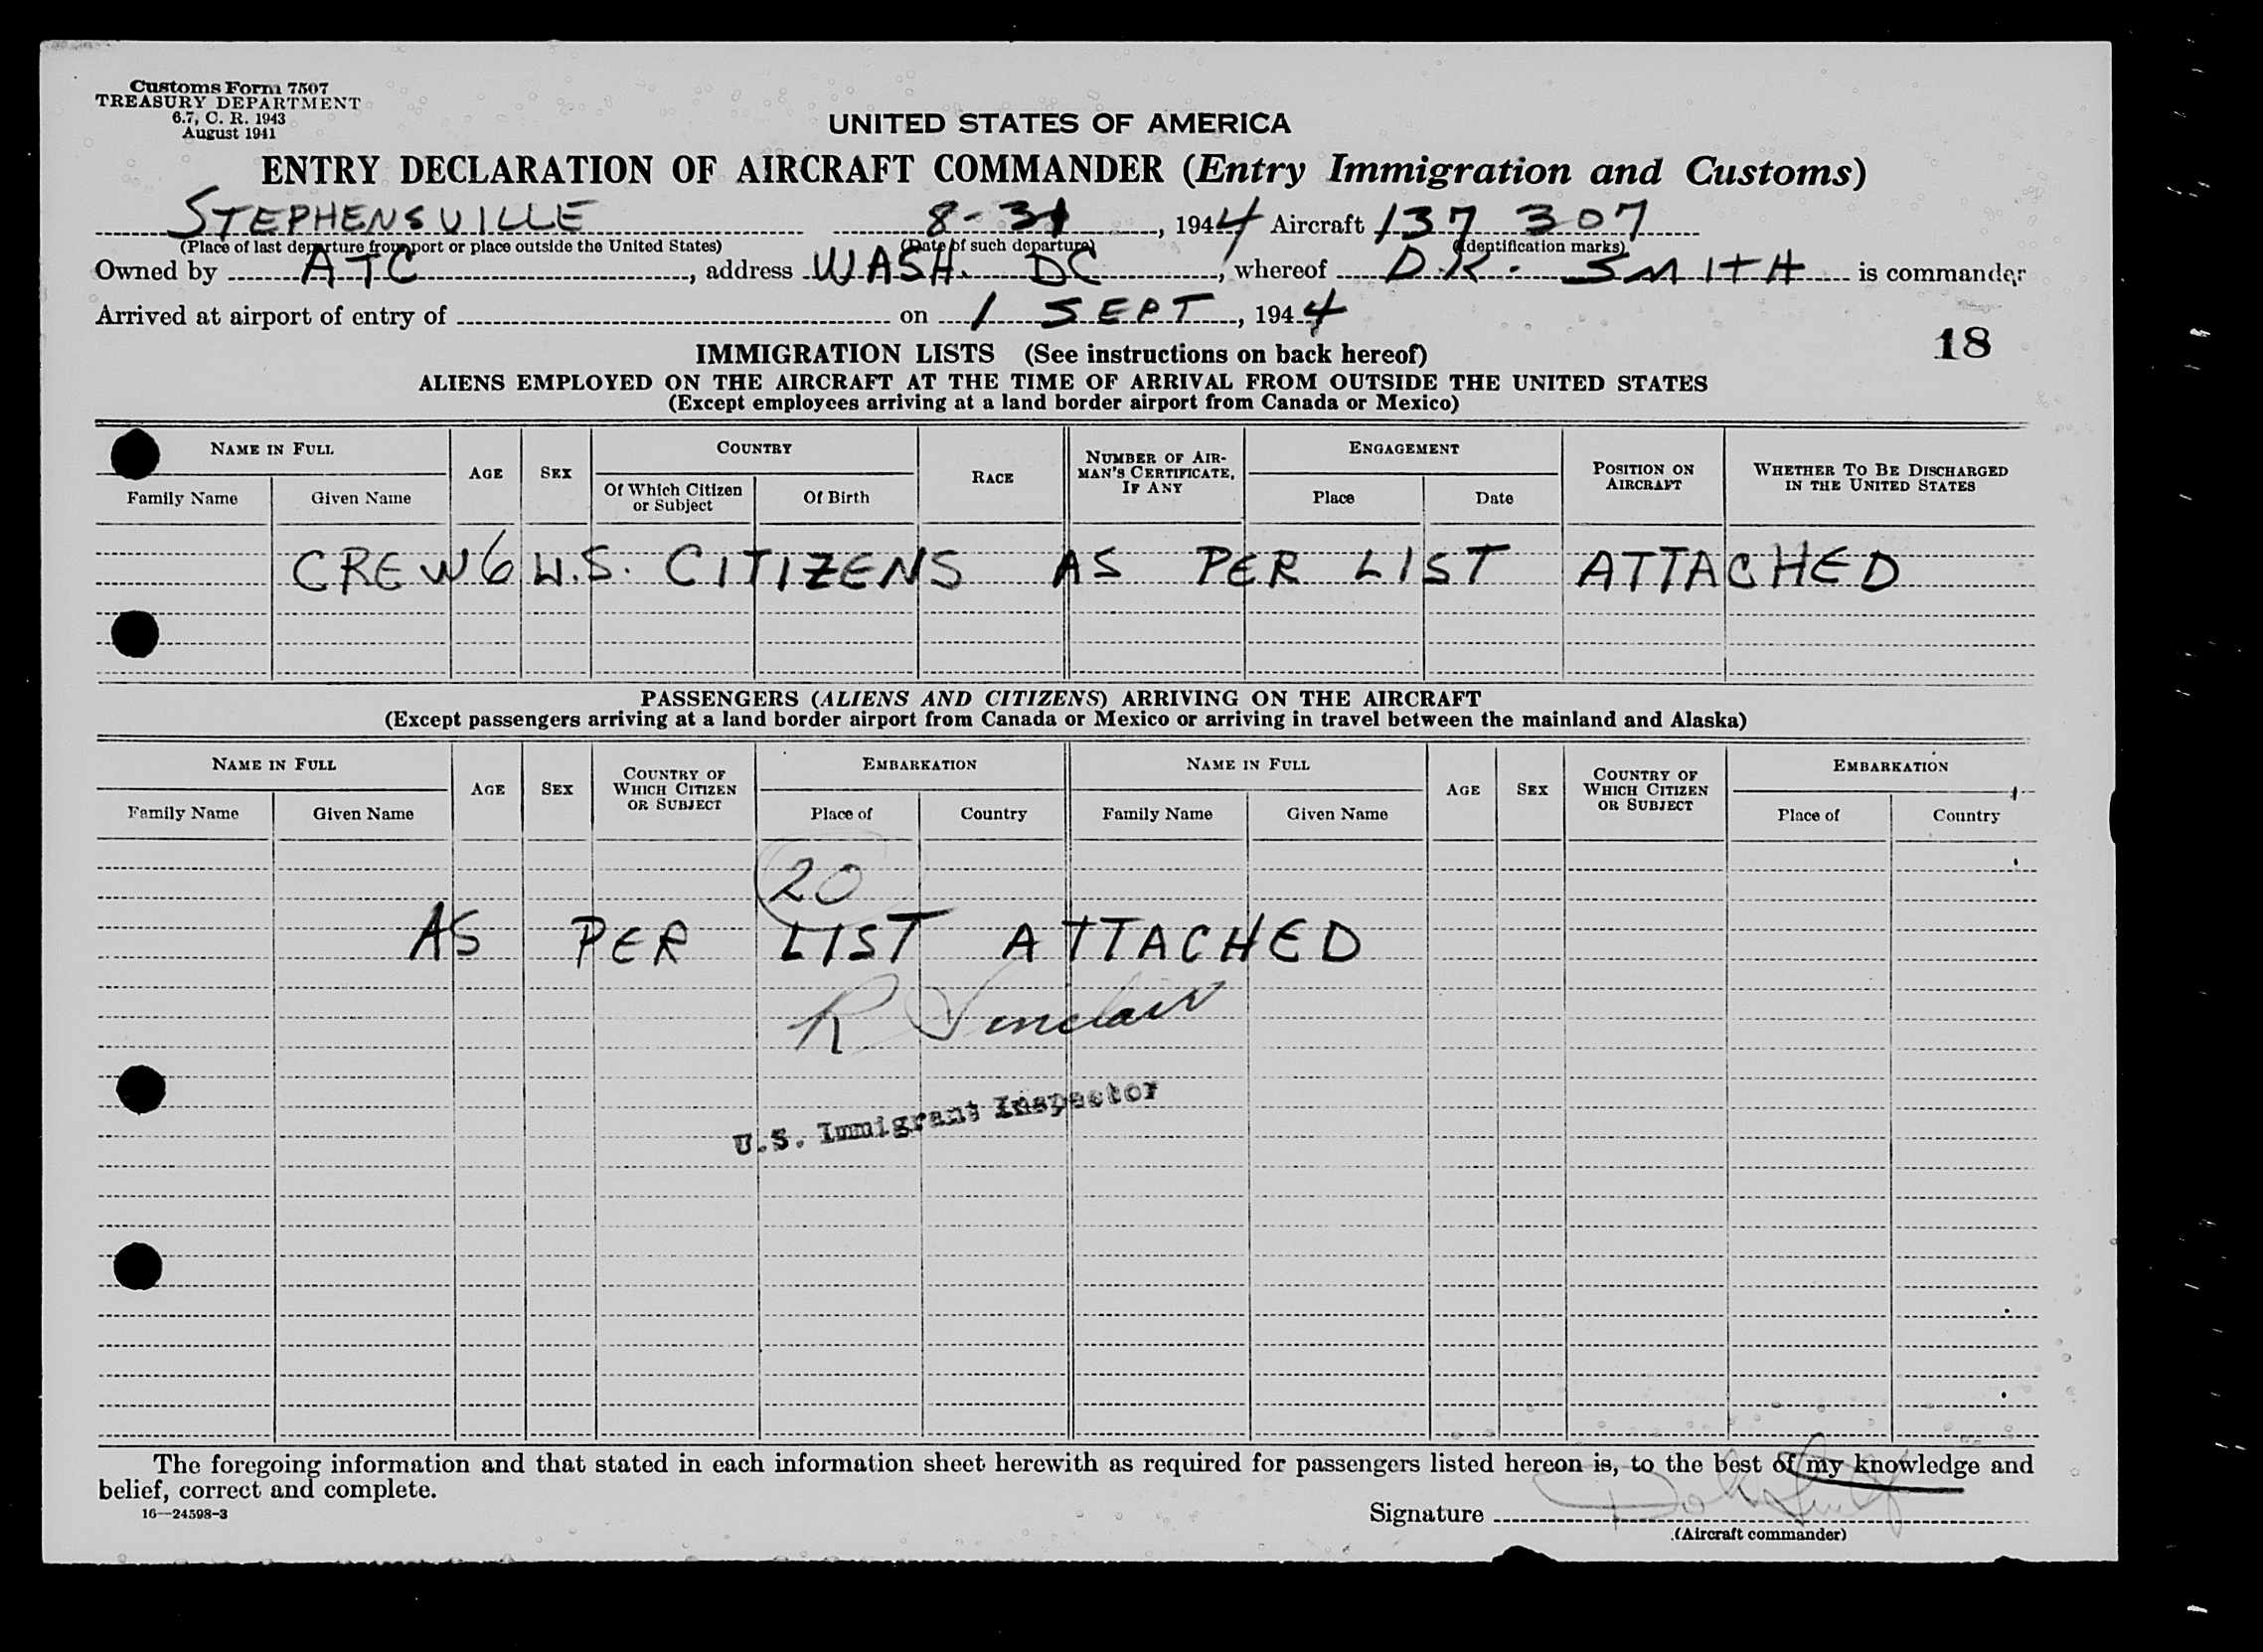 Customs Form 7507
TREASURY DEPARTMENT
6.7, C. R. 1943
August 1941
UNITED STATES OF AMERICA
ENTRY DECLARATION OF AIRCRAFT COMMANDER (Entry Immigration and Customs)
STEPHENSVILLE 8-31, 1944 Aircraft 137 307
(Place of last departure from port or place outside the United States) (Date of such departure) (Identification marks)
Owned by ATC, address WASH. DC, whereof D.R. SMITH is commander
Arrived at airport of entry of on 1 SEPT, 1944
18
IMMIGRATION LISTS (See instructions on back hereof)
ALIENS EMPLOYED ON THE AIRCRAFT AT THE TIME OF ARRIVAL FROM OUTSIDE THE UNITED STATES
(Except employees arriving at a land border airport from Canada or Mexico)
NAME IN FULL AGE SEX COUNTRY RACE NUMBER OF AIRMAN'S CERTIFICATE, IF ANY ENGAGEMENT POSITION ON AIRCRAFT WHETHER TO BE DISCHARGED IN THE UNITED STATES
Family Name Given Name Of Which Citizen or Subject Of Birth Place Date
CREW 6 U.S. CITIZENS AS PER LIST ATTACHED
PASSENGERS (ALIENS AND CITIZENS) ARRIVING ON THE AIRCRAFT
(Except passengers arriving at a land border airport from Canada or Mexico or arriving in travel between the mainland and Alaska)
NAME IN FULL AGE SEX COUNTRY OF WHICH CITIZEN OR SUBJECT EMBARKATION NAME IN FULL AGE SEX COUNTRY OF WHICH CITIZEN OR SUBJECT EMBARKATION
Family Name Given Name Place of Country Family Name Given Name Place of Country
20
AS PER LIST ATTACHED
R Sinclair
U.S. Immigrant Inspector
The foregoing information and that stated in each information sheet herewith as required for passengers listed hereon is, to the best of my knowledge and
belief, correct and complete.
16—24598-3
Signature
(Aircraft commander)